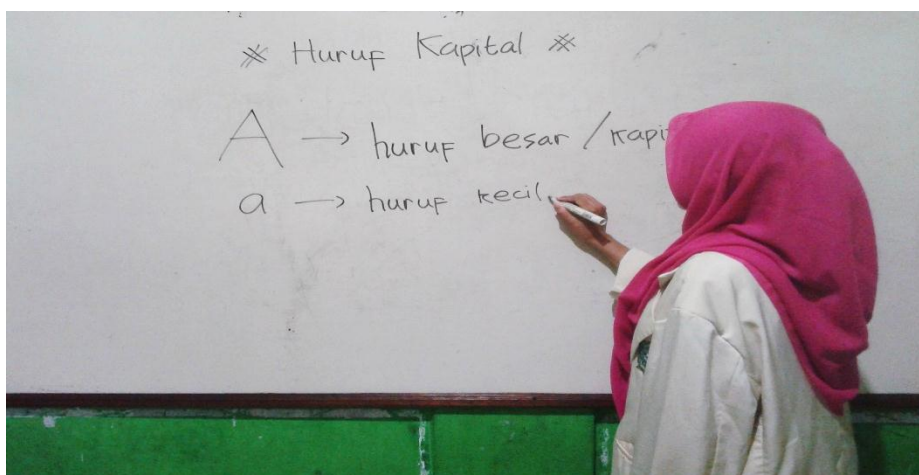 ※ Huruf Kapital ※
A → huruf besar / kapi
a → huruf kecil